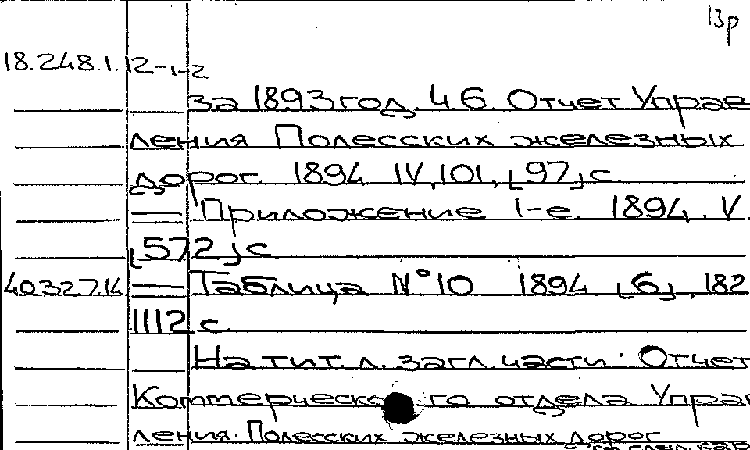 13р
18.248.1.12-1-2
за 1893 год. Ч 6. Отчет Управ
ления Полесских железных
дорог. 1894 IV, 101, [97] с.
— Приложение 1-е. 1894. V.
[572] с
40.327.14 — Таблица № 10 1894 [6], 182
1112 с.
На тит. л. загл. части: Отчет
Коммерческого отдела Управ
ления Полесских железных дорог